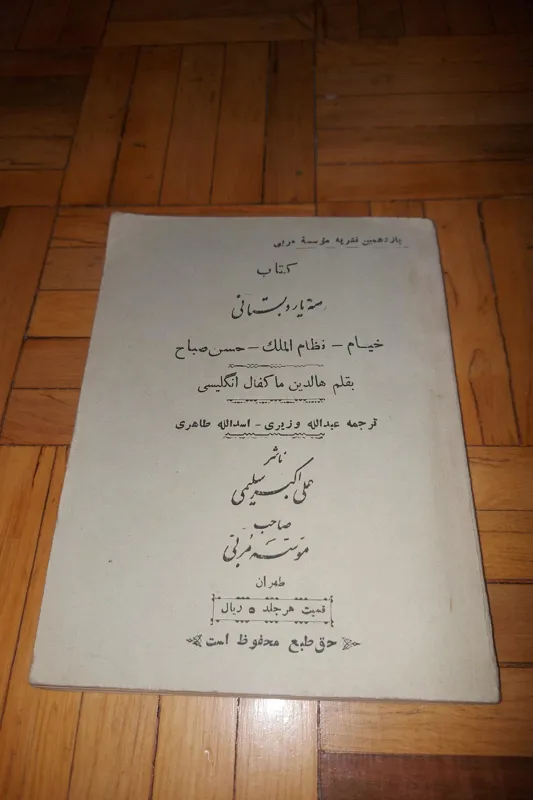 پانزدهمین نشریه مؤسسهٔ مربی
کتاب
سه یار دبستانی
خیام – نظام الملک – حسن صباح
بقلم هالدین ماکفال انگلیسی
ترجمه عبدالله وزیری – اسدالله طاهری
ناشر
علی اکبر سلیمی
صاحب
مؤسسه مُربّی
طهران
قمیت هر جلد ۵ ریال
حق طبع محفوظ است